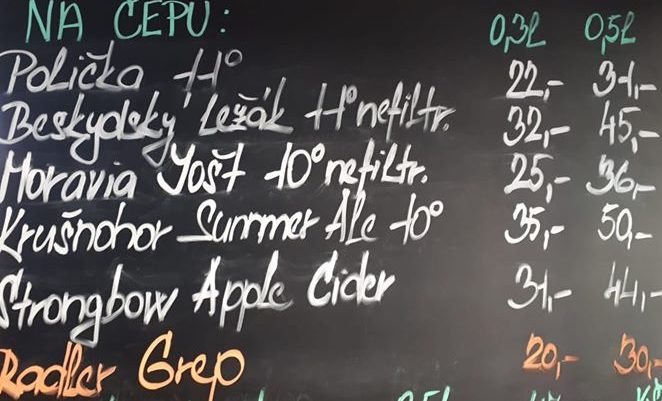 NA ČEPU: 0,3l 0,5l
Polička 11° 22,- 31,-
Beskydský ležák 11° nefiltr. 32,- 45,-
Moravia Jošt 10° nefiltr. 25,- 36,-
Krušnohor Summer Ale 10° 35,- 50,-
Strongbow Apple Cider 31,- 44,-
Radler Grep 20,- 30,-
0,5l